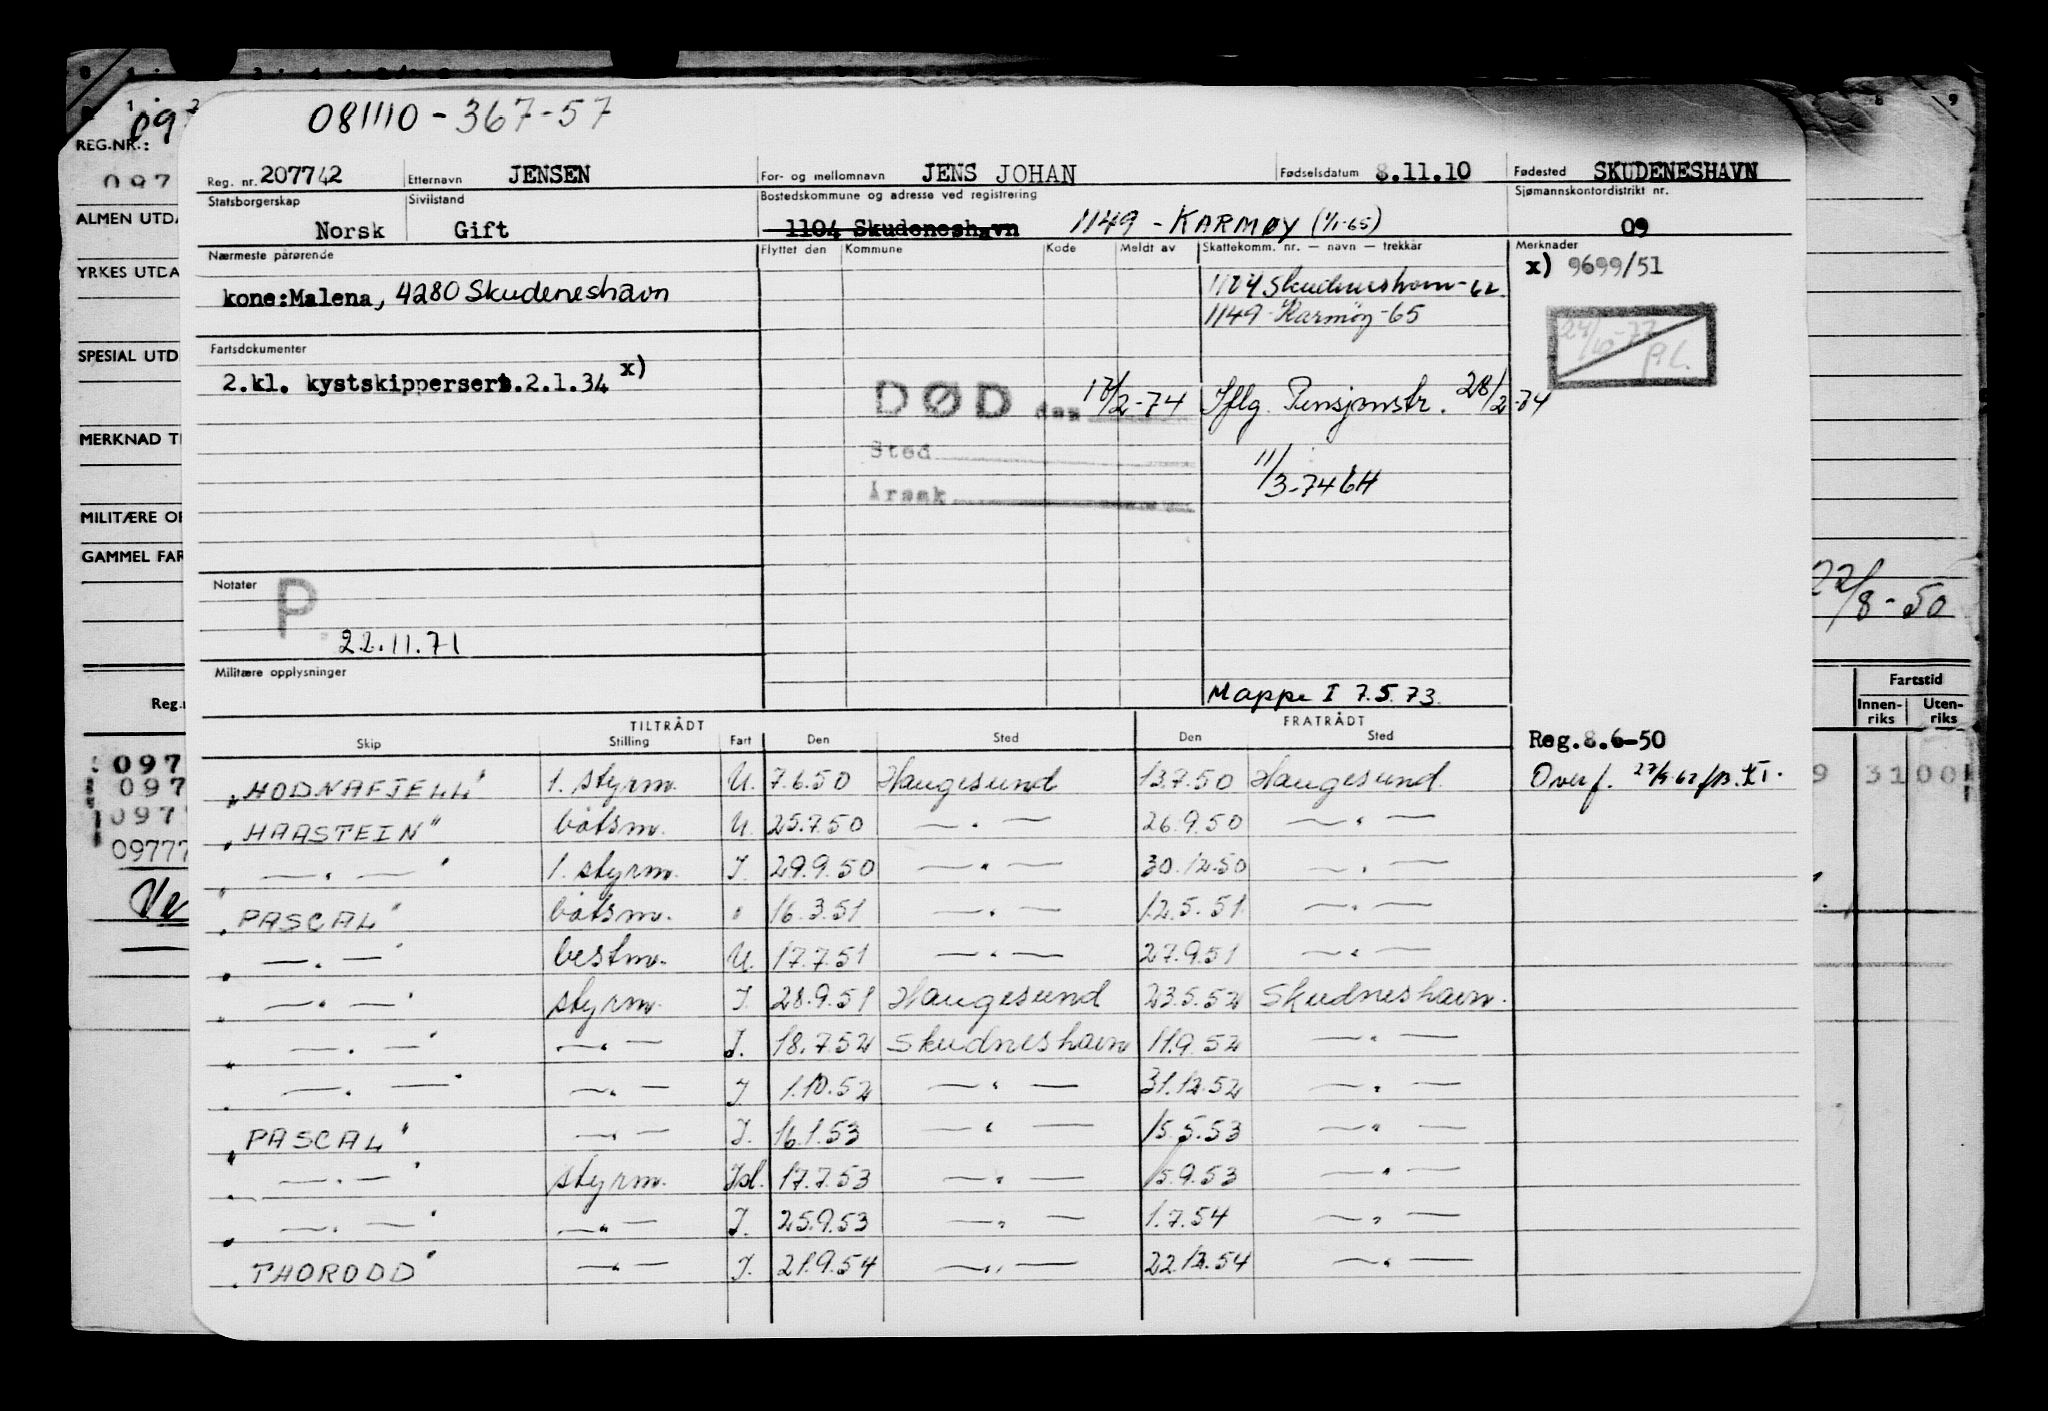 081110-367-57
Reg. nr. 207742 Etternavn JENSEN For- og mellomnavn JENS JOHAN Fødselsdatum 8.11.10 Fødested SKUDENESHAVN
Statsborgerskap Norsk Sivilstand Gift Bostedskommune og adresse ved registrering 1104 Skudeneshavn 1149 - KARMØY (1/1-65) Sjømannskontordistrikt nr. 09
Nærmeste pårørende Flyttet den Kommune Kode Meldt av Skattekomm. nr. — navn — trekkår Merknader
x) 9699/51
kone:Malena, 4280 Skudeneshavn
1104 Skudneshavn-62
1149 Karmöy-65
Fartsdokumenter
2.kl. kystskippersert.2.1.34 x)
DØD den 17/2-74 Iflg. Pensjonstr. 28/2-74
Sted
11/3-74 GH
Årsak
Notater
P.
22.11.71
Militære opplysninger
Mappe I 7.5.73.
TILTRÅDT FRATRÅDT
Skip Stilling Fart Den Sted Den Sted
Reg.8.6-50
"HODNAFJELL" 1. styrm. U. 7.6.50 Haugesund 13.7.50 Haugesund
"HAASTEIN" båtsm. U. 25.7.50 — " — 26.9.50 — " —
" — " — " 1. styrm. I. 29.9.50 — " — 30.12.50 — " —
"PASCAL" båtsm. " 16.3.51 — " — 12.5.51 — " —
" — " — " bestm. U. 17.7.51 — " — 27.9.51 — " —
" — " — " styrm. I. 28.9.51 Haugesund 23.5.52 Skudneshavn.
" — " — " — " — I. 18.7.52 Skudneshavn 11.9.52 — " —
" — " — " — " — I 1.10.52 — " — 31.12.52 — " —
"PASCAL" — " — I. 16.1.53 — " — 15.5.53 — " —
" — " — " styrm. Isl. 17.7.53 — " — 15.9.53 — " —
" — " — " — " — I. 25.9.53 — " — 1.7.54 — " —
"THORODD" — " — I. 21.9.54 — " — 22.12.54 — " —
REG.NR.:
097
ALMEN UTDA
YRKES UTDA
SPESIAL UTD
MERKNAD TI
MILITÆRE OP
GAMMEL FAR
22/8-50
Reg.n
Fartstid
Innen-riks Uten-riks
097
097
097
09777
Ve
9 31 00